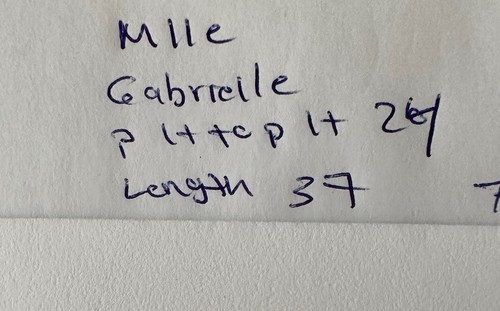 Mlle
Gabrielle
p it to p it
Length 37 7